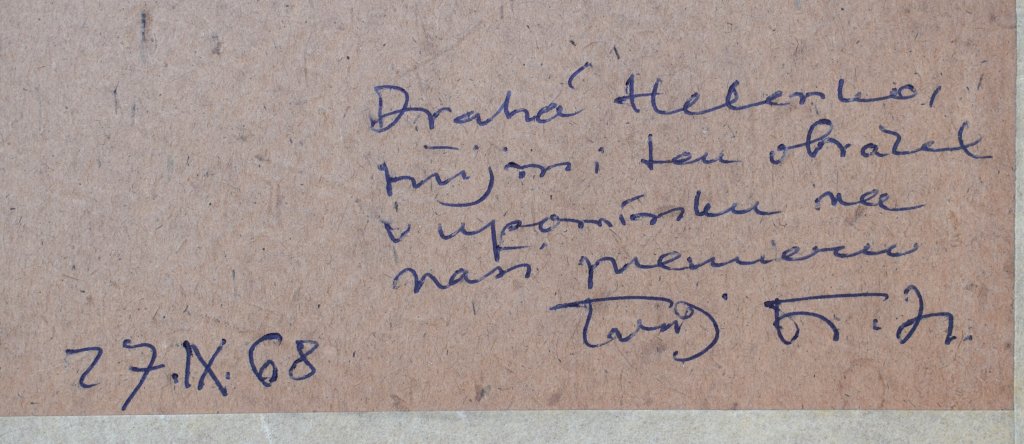 Drahá Helenko,
přijmi ten obrázek
v upomínku na
naši premieru
Tvůj Fr. Jr.
27.IX.68